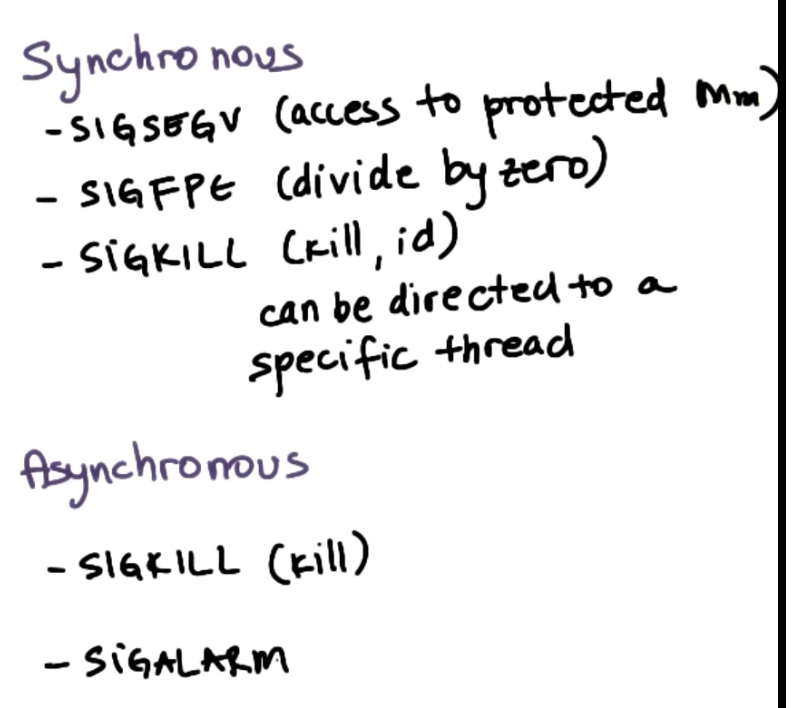 Synchronous
- SIGSEGV (access to protected Mm)
- SIGFPE (divide by zero)
- SIGKILL (kill, id)
can be directed to a
specific thread
Asynchronous
- SIGKILL (kill)
- SIGALARM